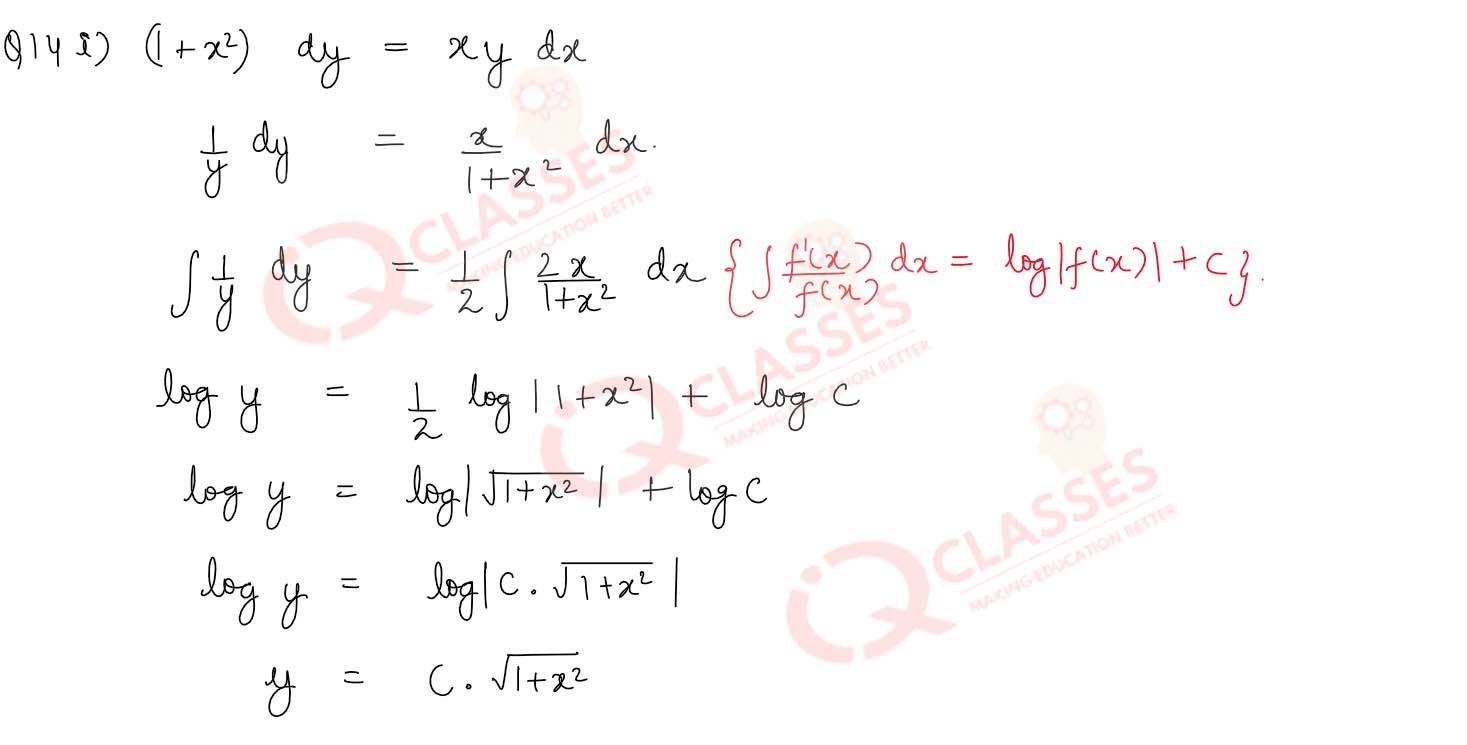 Q14 i) (1+x²) dy = xy dx
1/y dy = x/1+x² dx.
∫ 1/y dy = 1/2 ∫ 2x/1+x² dx {∫ f'(x)/f(x) dx = log|f(x)| + c}.
log y = 1/2 log |1+x²| + log c
log y = log|√1+x²| + log c
log y = log|c . √1+x²|
y = c . √1+x²
IQ CLASSES
MAKING EDUCATION BETTER
IQ CLASSES
MAKING EDUCATION BETTER
IQ CLASSES
MAKING EDUCATION BETTER